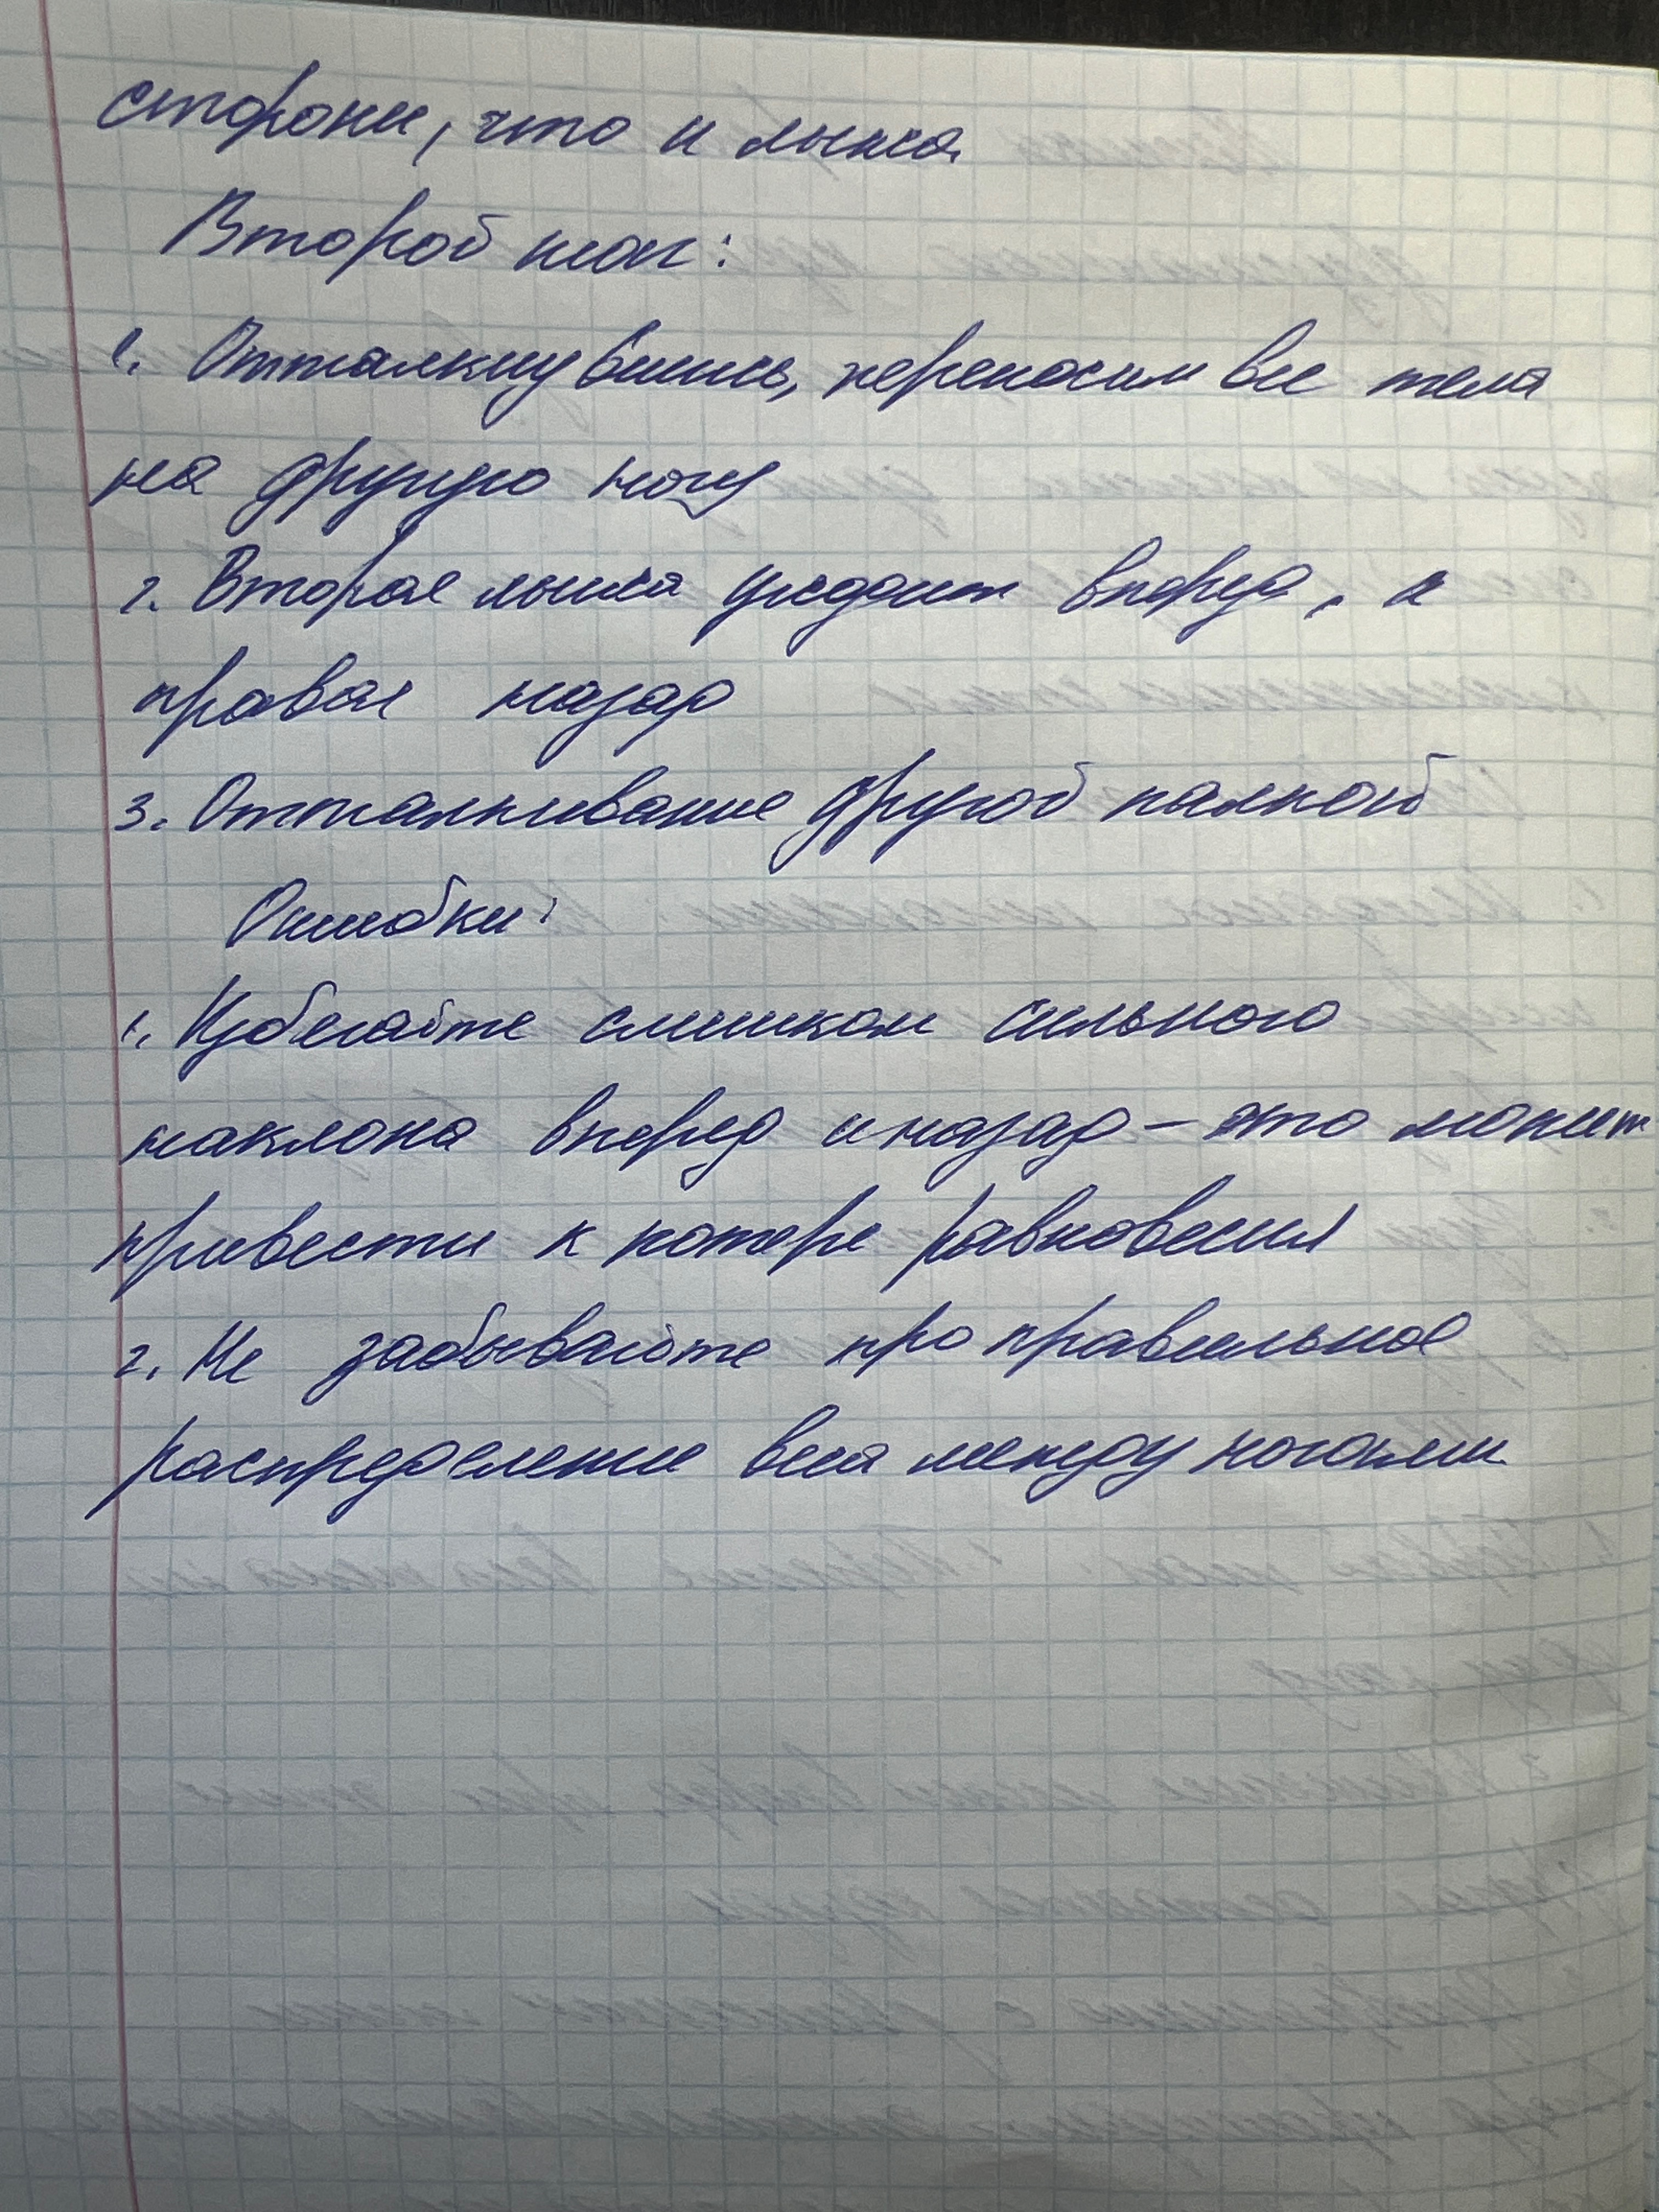 стороны, что и лыжа
Второй шаг:
1. Оттолкнувшись, переносим вес тела
на другую ногу
2. Вторая лыжа уходит вперед, а
правая назад
3. Отталкивание другой палкой
Ошибки:
1. Избегайте слишком сильного
наклона вперед и назад – это может
привести к потере равновесия
2. Не забывайте про правильное
распределение веса между ногами